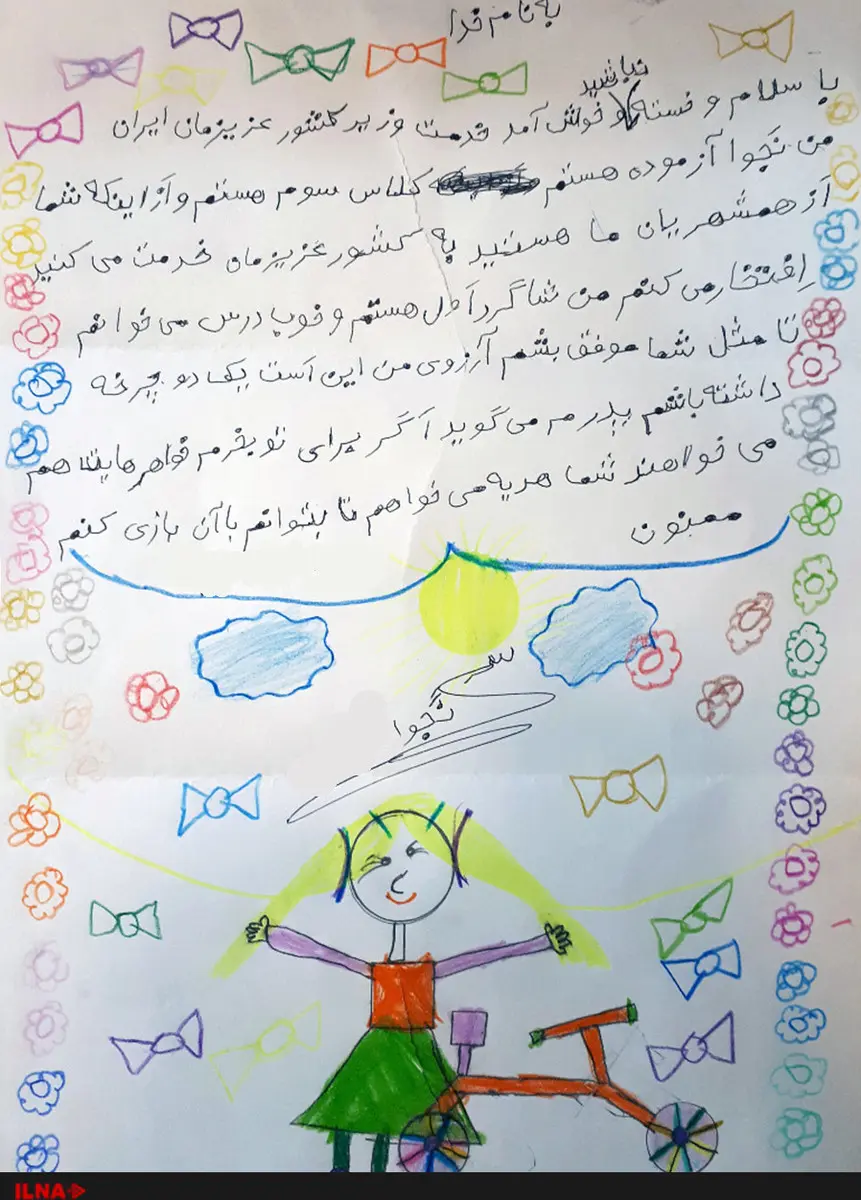 به نام خدا
نباشید
با سلام و خسته و خوش آمد خدمت وزیر کشور عزیزمان ایران
من نجوا آزموده هستم کلاس سوم هستم و از اینکه شما
از همشهریان ما هستید به کشور عزیزمان خدمت می کنید
افتخار می کنم من شاگرد اول هستم و خوب درس می خوانم
تا مثل شما موفق بشم آرزوی من این است یک دو چرخه
داشته باشم پدرم می گوید اگر برای تو بخرم خواهرهایت هم
می خواهند شما هدیه می خواهم تا بتوانم با آن بازی کنم
ممنون
نجوا
ILNA